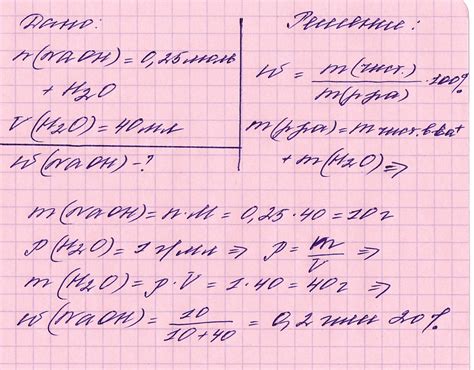 Дано:
n(NaOH) = 0,25 моль
+ H2O
V(H2O) = 40 мл
w(NaOH) - ?
Решение:
w = m(чист.) / m(р-ра) · 100%
m(р-ра) = m чист. в-ва +
+ m(H2O) ⇒
m(NaOH) = n·M = 0,25·40 = 10 г
ρ(H2O) = 1 г/мл ⇒ ρ = m/V ⇒
m(H2O) = ρ·V = 1·40 = 40 г ⇒
w(NaOH) = 10 / 10+40 = 0,2 или 20%